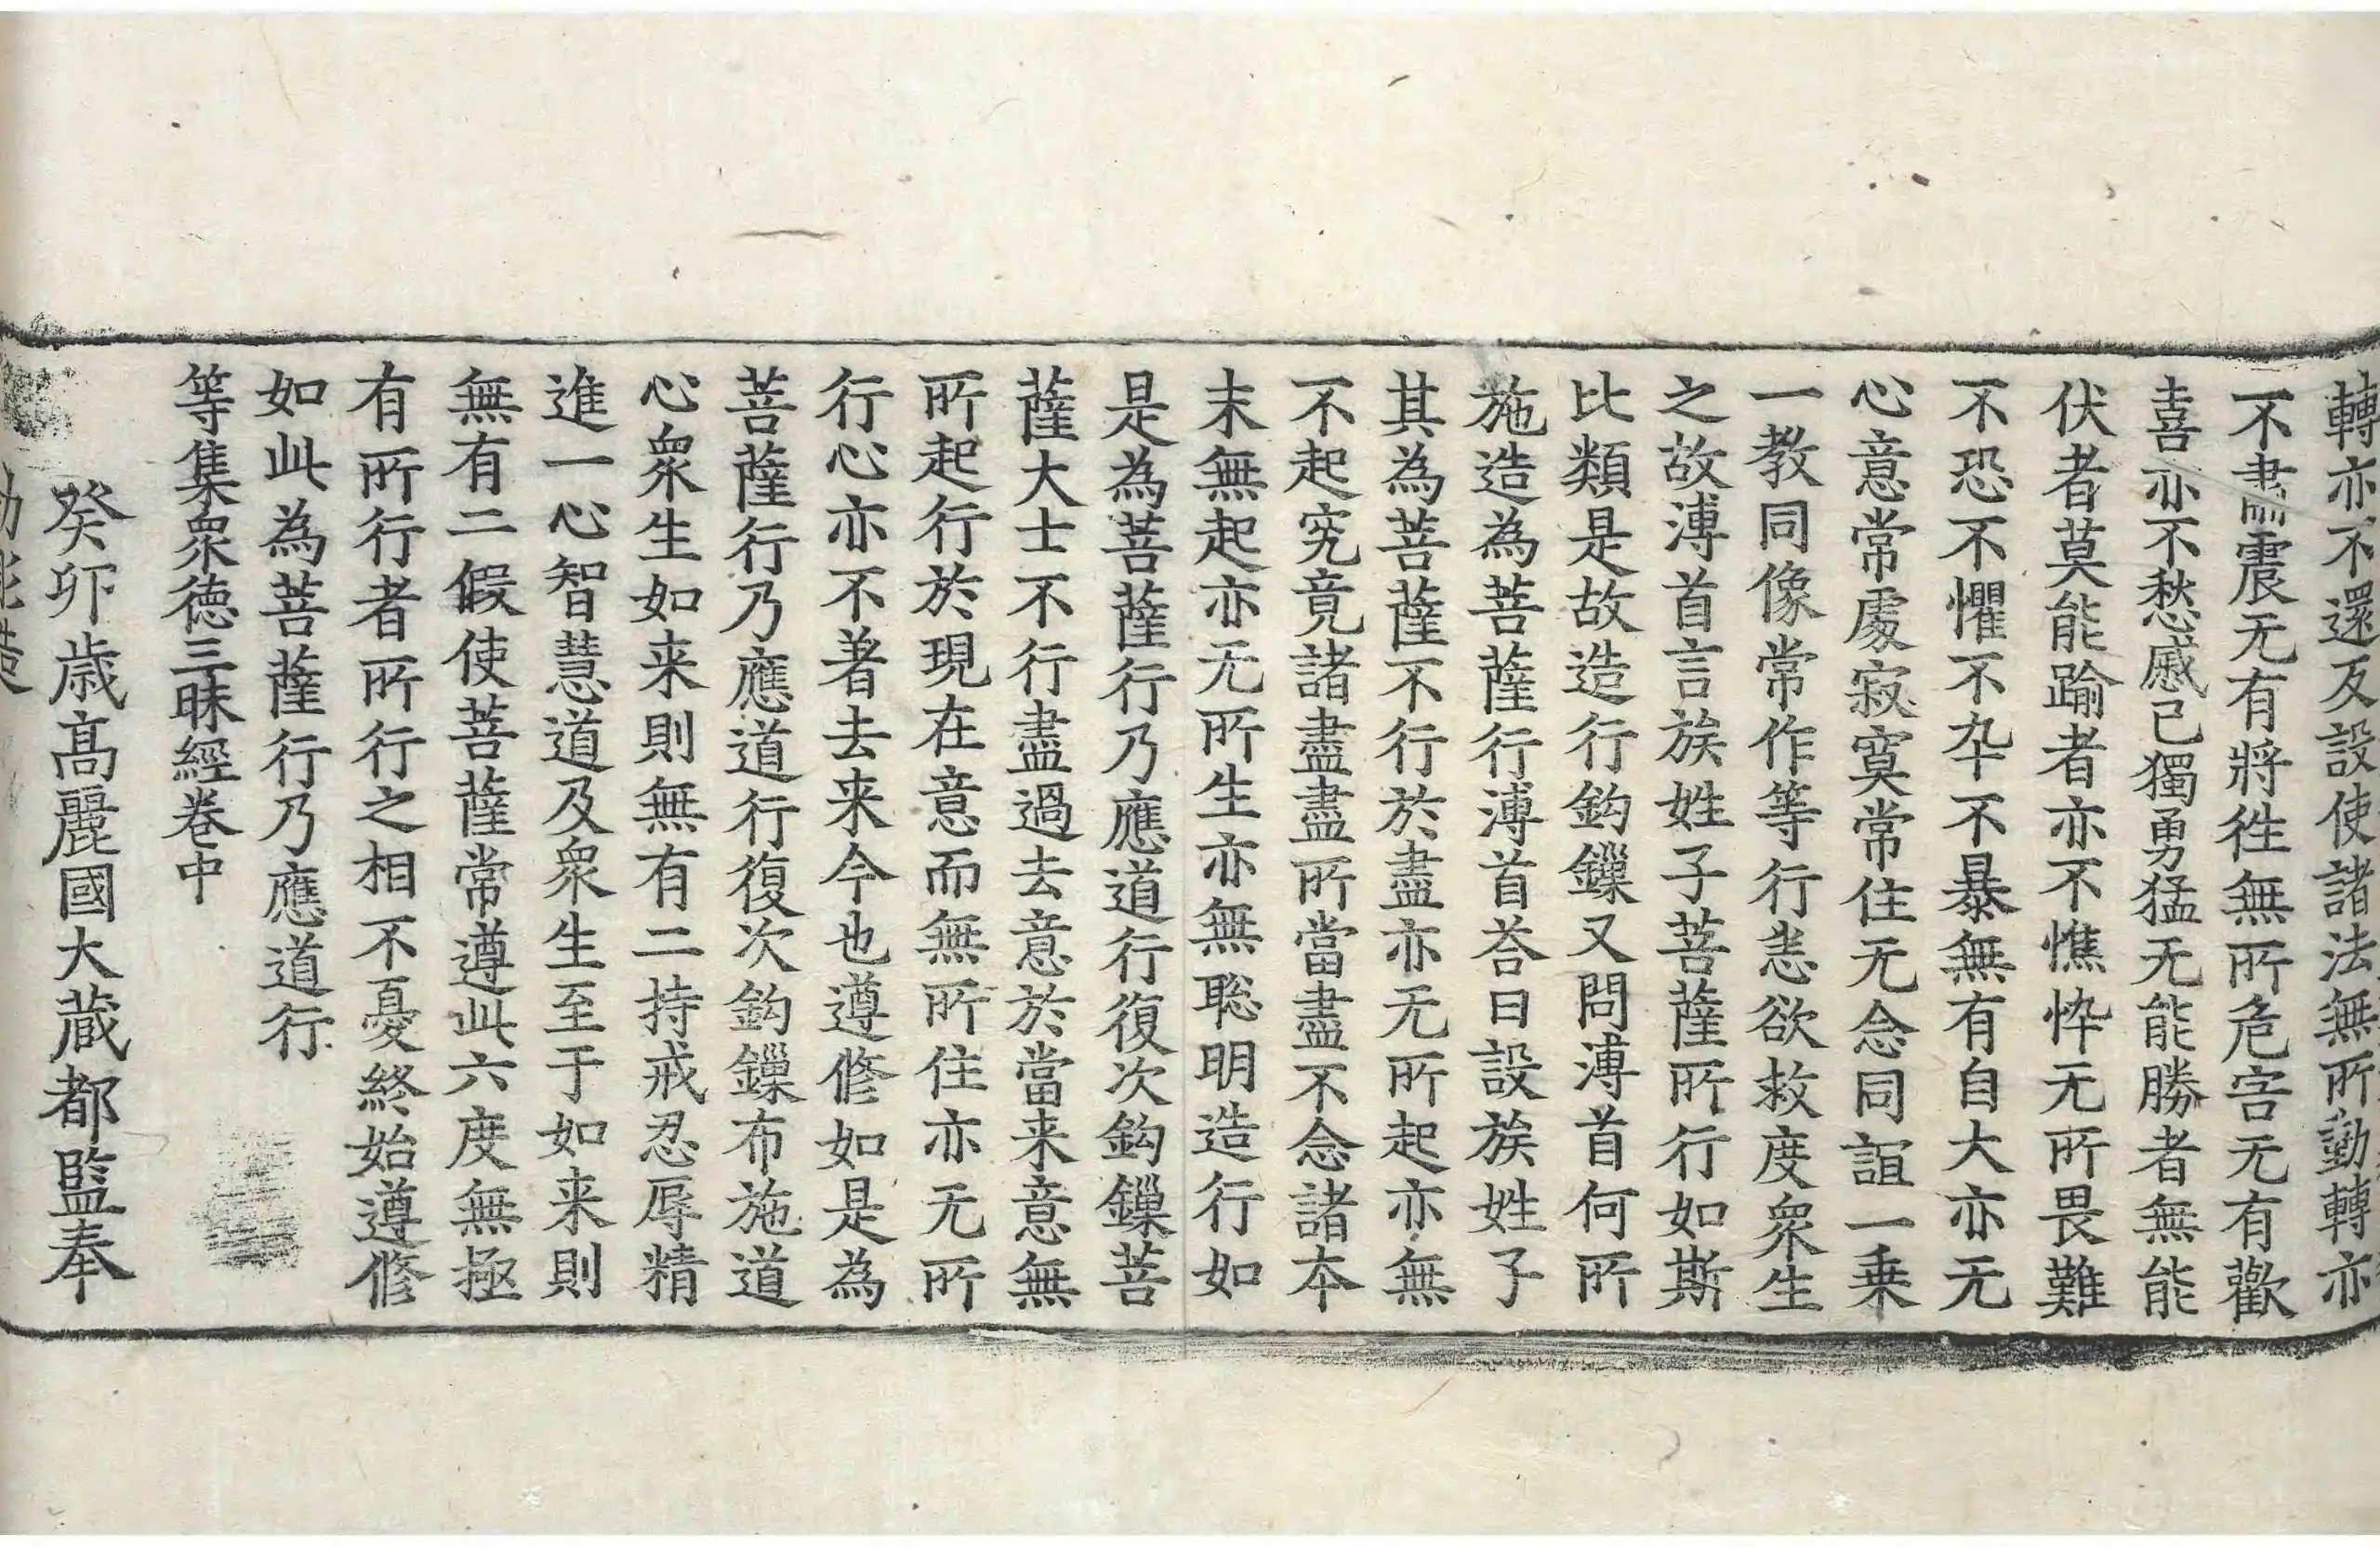 轉亦不還反設使諸法無所動轉亦
不肅震无有將徃無所危害无有歡
喜亦不愁慼己獨勇猛无能勝者無能
伏者莫能踰者亦不憔悴无所畏難
不恐不懼不卒不暴無有自大亦无
心意常處寂寞常住无念同誼一乗
一教同像常作等行恙欲救度衆生
之故溥首言族姓子菩薩所行如斯
比類是故造行鈎鏁又問溥首何所
施造為菩薩行溥首荅曰設族姓子
其為菩薩不行於盡亦无所起亦無
不起究竟諸盡盡所當盡不念諸本
末無起亦无所生亦無聡明造行如
是為菩薩行乃應道行復次鈎鏁菩
薩大士不行盡過去意於當来意無
所起行於現在意而無所住亦无所
行心亦不著去来今也遵修如是為
菩薩行乃應道行復次鈎鏁布施道
心衆生如来則無有二持戒忍辱精
進一心智慧道及衆生至于如来則
無有二假使菩薩常遵此六度無極
有所行者所行之相不憂終始遵修
如此為菩薩行乃應道行
等集衆德三昧經卷中
癸卯歳髙麗國大蔵都監奉